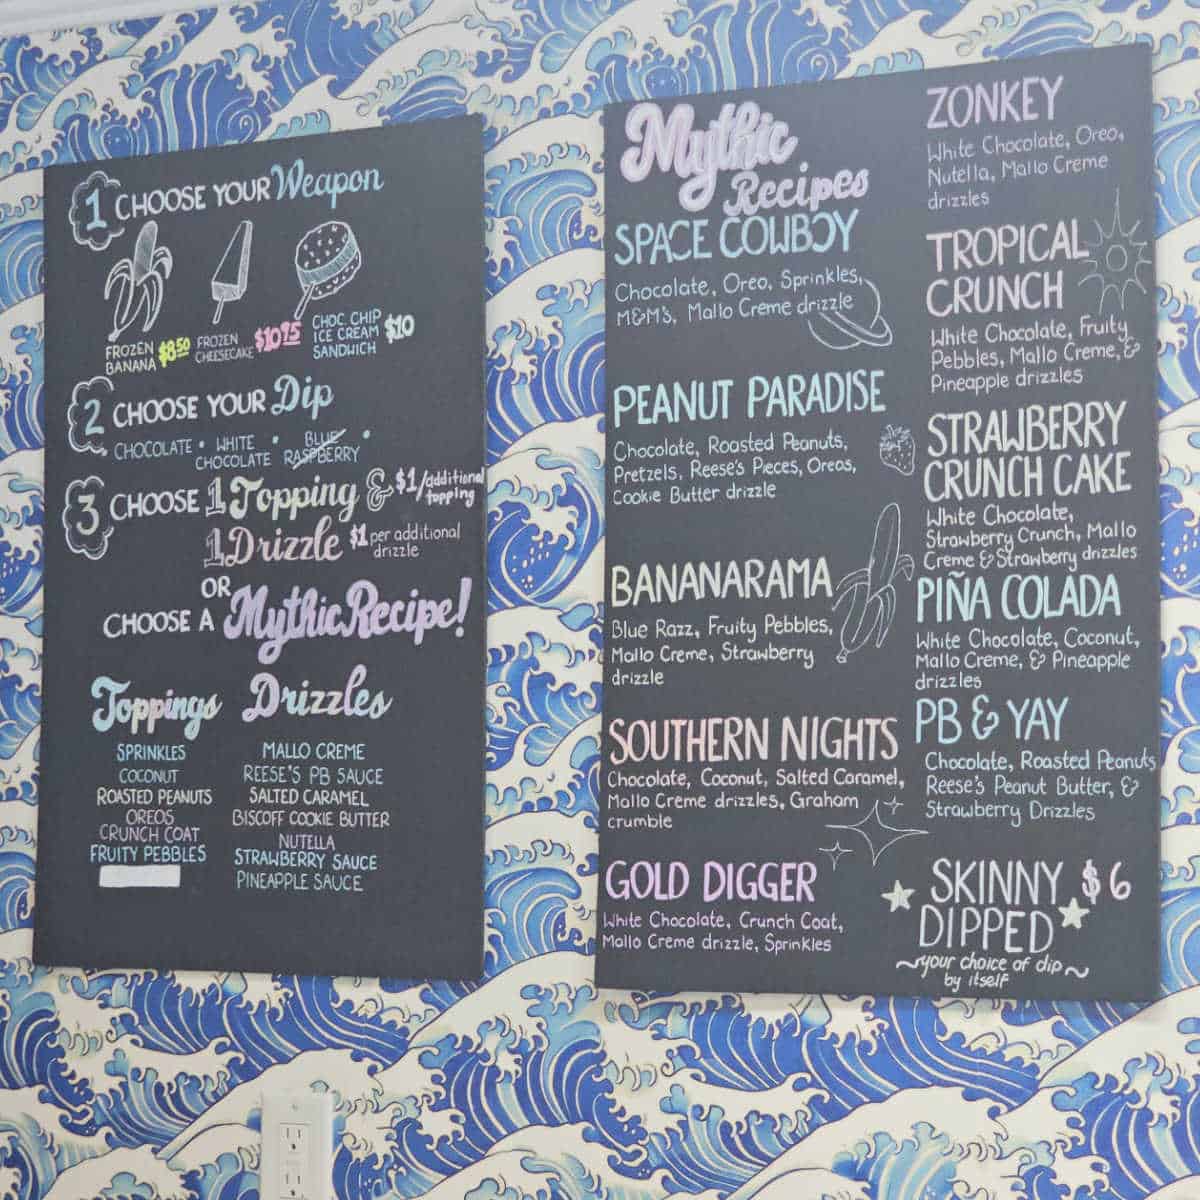 1 CHOOSE YOUR Weapon
FROZEN
BANANA $8.50
FROZEN
CHEESECAKE $10.75
CHOC. CHIP
ICE CREAM
SANDWICH $10
2 CHOOSE YOUR Dip
CHOCOLATE • WHITE
CHOCOLATE • BLUE
RASPBERRY •
3 CHOOSE 1 Topping & $1/additional
topping
1 Drizzle $1 per additional
drizzle
OR
CHOOSE A Mythic Recipe!
Toppings
SPRINKLES
COCONUT
ROASTED PEANUTS
OREOS
CRUNCH COAT
FRUITY PEBBLES
Drizzles
MALLO CREME
REESE'S PB SAUCE
SALTED CARAMEL
BISCOFF COOKIE BUTTER
NUTELLA
STRAWBERRY SAUCE
PINEAPPLE SAUCE
Mythic
Recipes
SPACE COWBOY
Chocolate, Oreo, Sprinkles,
M&M's, Mallo Creme drizzle
PEANUT PARADISE
Chocolate, Roasted Peanuts,
Pretzels, Reese's Pieces, Oreos,
Cookie Butter drizzle
BANANARAMA
Blue Razz, Fruity Pebbles,
Mallo Creme, Strawberry
drizzle
SOUTHERN NIGHTS
Chocolate, Coconut, Salted Caramel,
Mallo Creme drizzles, Graham
crumble
GOLD DIGGER
White Chocolate, Crunch Coat,
Mallo Creme drizzle, Sprinkles
ZONKEY
White Chocolate, Oreo,
Nutella, Mallo Creme
drizzles
TROPICAL
CRUNCH
White Chocolate, Fruity
Pebbles, Mallo Creme, &
Pineapple drizzles
STRAWBERRY
CRUNCH CAKE
White Chocolate,
Strawberry Crunch, Mallo
Creme & Strawberry drizzles
PIÑA COLADA
White Chocolate, Coconut,
Mallo Creme, & Pineapple
drizzles
PB & YAY
Chocolate, Roasted Peanuts
Reese's Peanut Butter, &
Strawberry Drizzles
SKINNY $6
DIPPED
~your choice of dip~
by itself